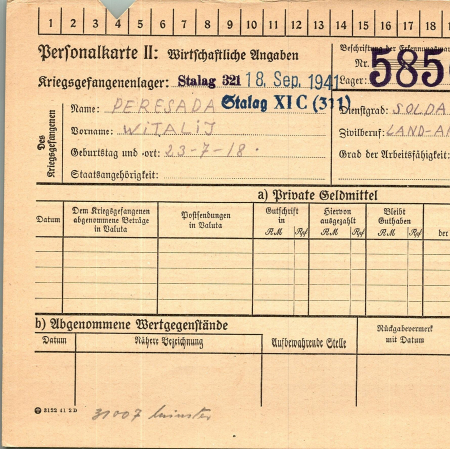 1 2 3 4 5 6 7 8 9 10 11 12 13 14 15 16 17 18
Personalkarte II: Wirtschaftliche Angaben
Beschriftung der
Nr. 585
Kriegsgefangenenlager: Stalag 321 18. Sep. 1941
Lager:
Stalag XI C (311)
Des Kriegsgefangenen
Name: PERESADA
Dienstgrad: SOLDA
Vorname: WITALIJ
Zivilberuf: LAND-A
Geburtstag und -ort: 23-7-18.
Grad der Arbeitsfähigkeit:
Staatsangehörigkeit:
a) Private Geldmittel
Datum
Dem Kriegsgefangenen abgenommene Beträge in Valuta
Postsendungen in Valuta
Gutschrift in
RM Rpf
Hiervon ausgezahlt
RM Rpf
Bleibt Guthaben
RM Rpf
der
b) Abgenommene Wertgegenstände
Datum
Nähere Bezeichnung
Aufbewahrende Stelle
Rückgabevermerk mit Datum
2122 41 2 D
31007